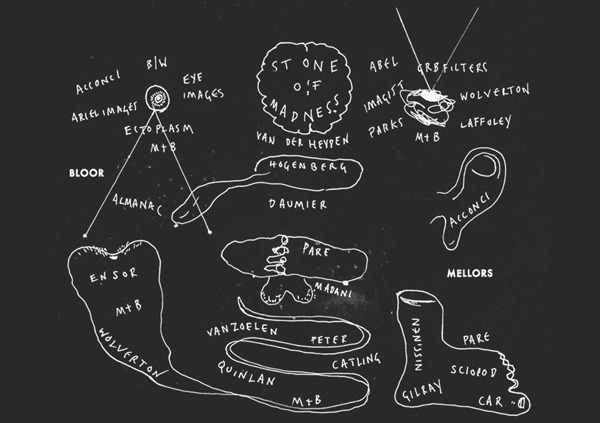 ACCONCI
B/W
EYE
IMAGES
ARIEL IMAGES
ECTOPLASM
M+B
BLOOR
ALMANAC
ENSOR
M+B
WOLVERTON
STONE
OF
MADNESS
VAN DER HEYDEN
HOGENBERG
DAUMIER
PARE
MADANI
VANZOELEN
PETER
CATLING
QUINLAN
M+B
ABEL
GRB FILTERS
IMAGIST
WOLVERTON
PARKS
LAFFOLEY
M+B
ACCONCI
MELLORS
NISSINEN
PARE
SCIOPOD
GILRAY
CAR